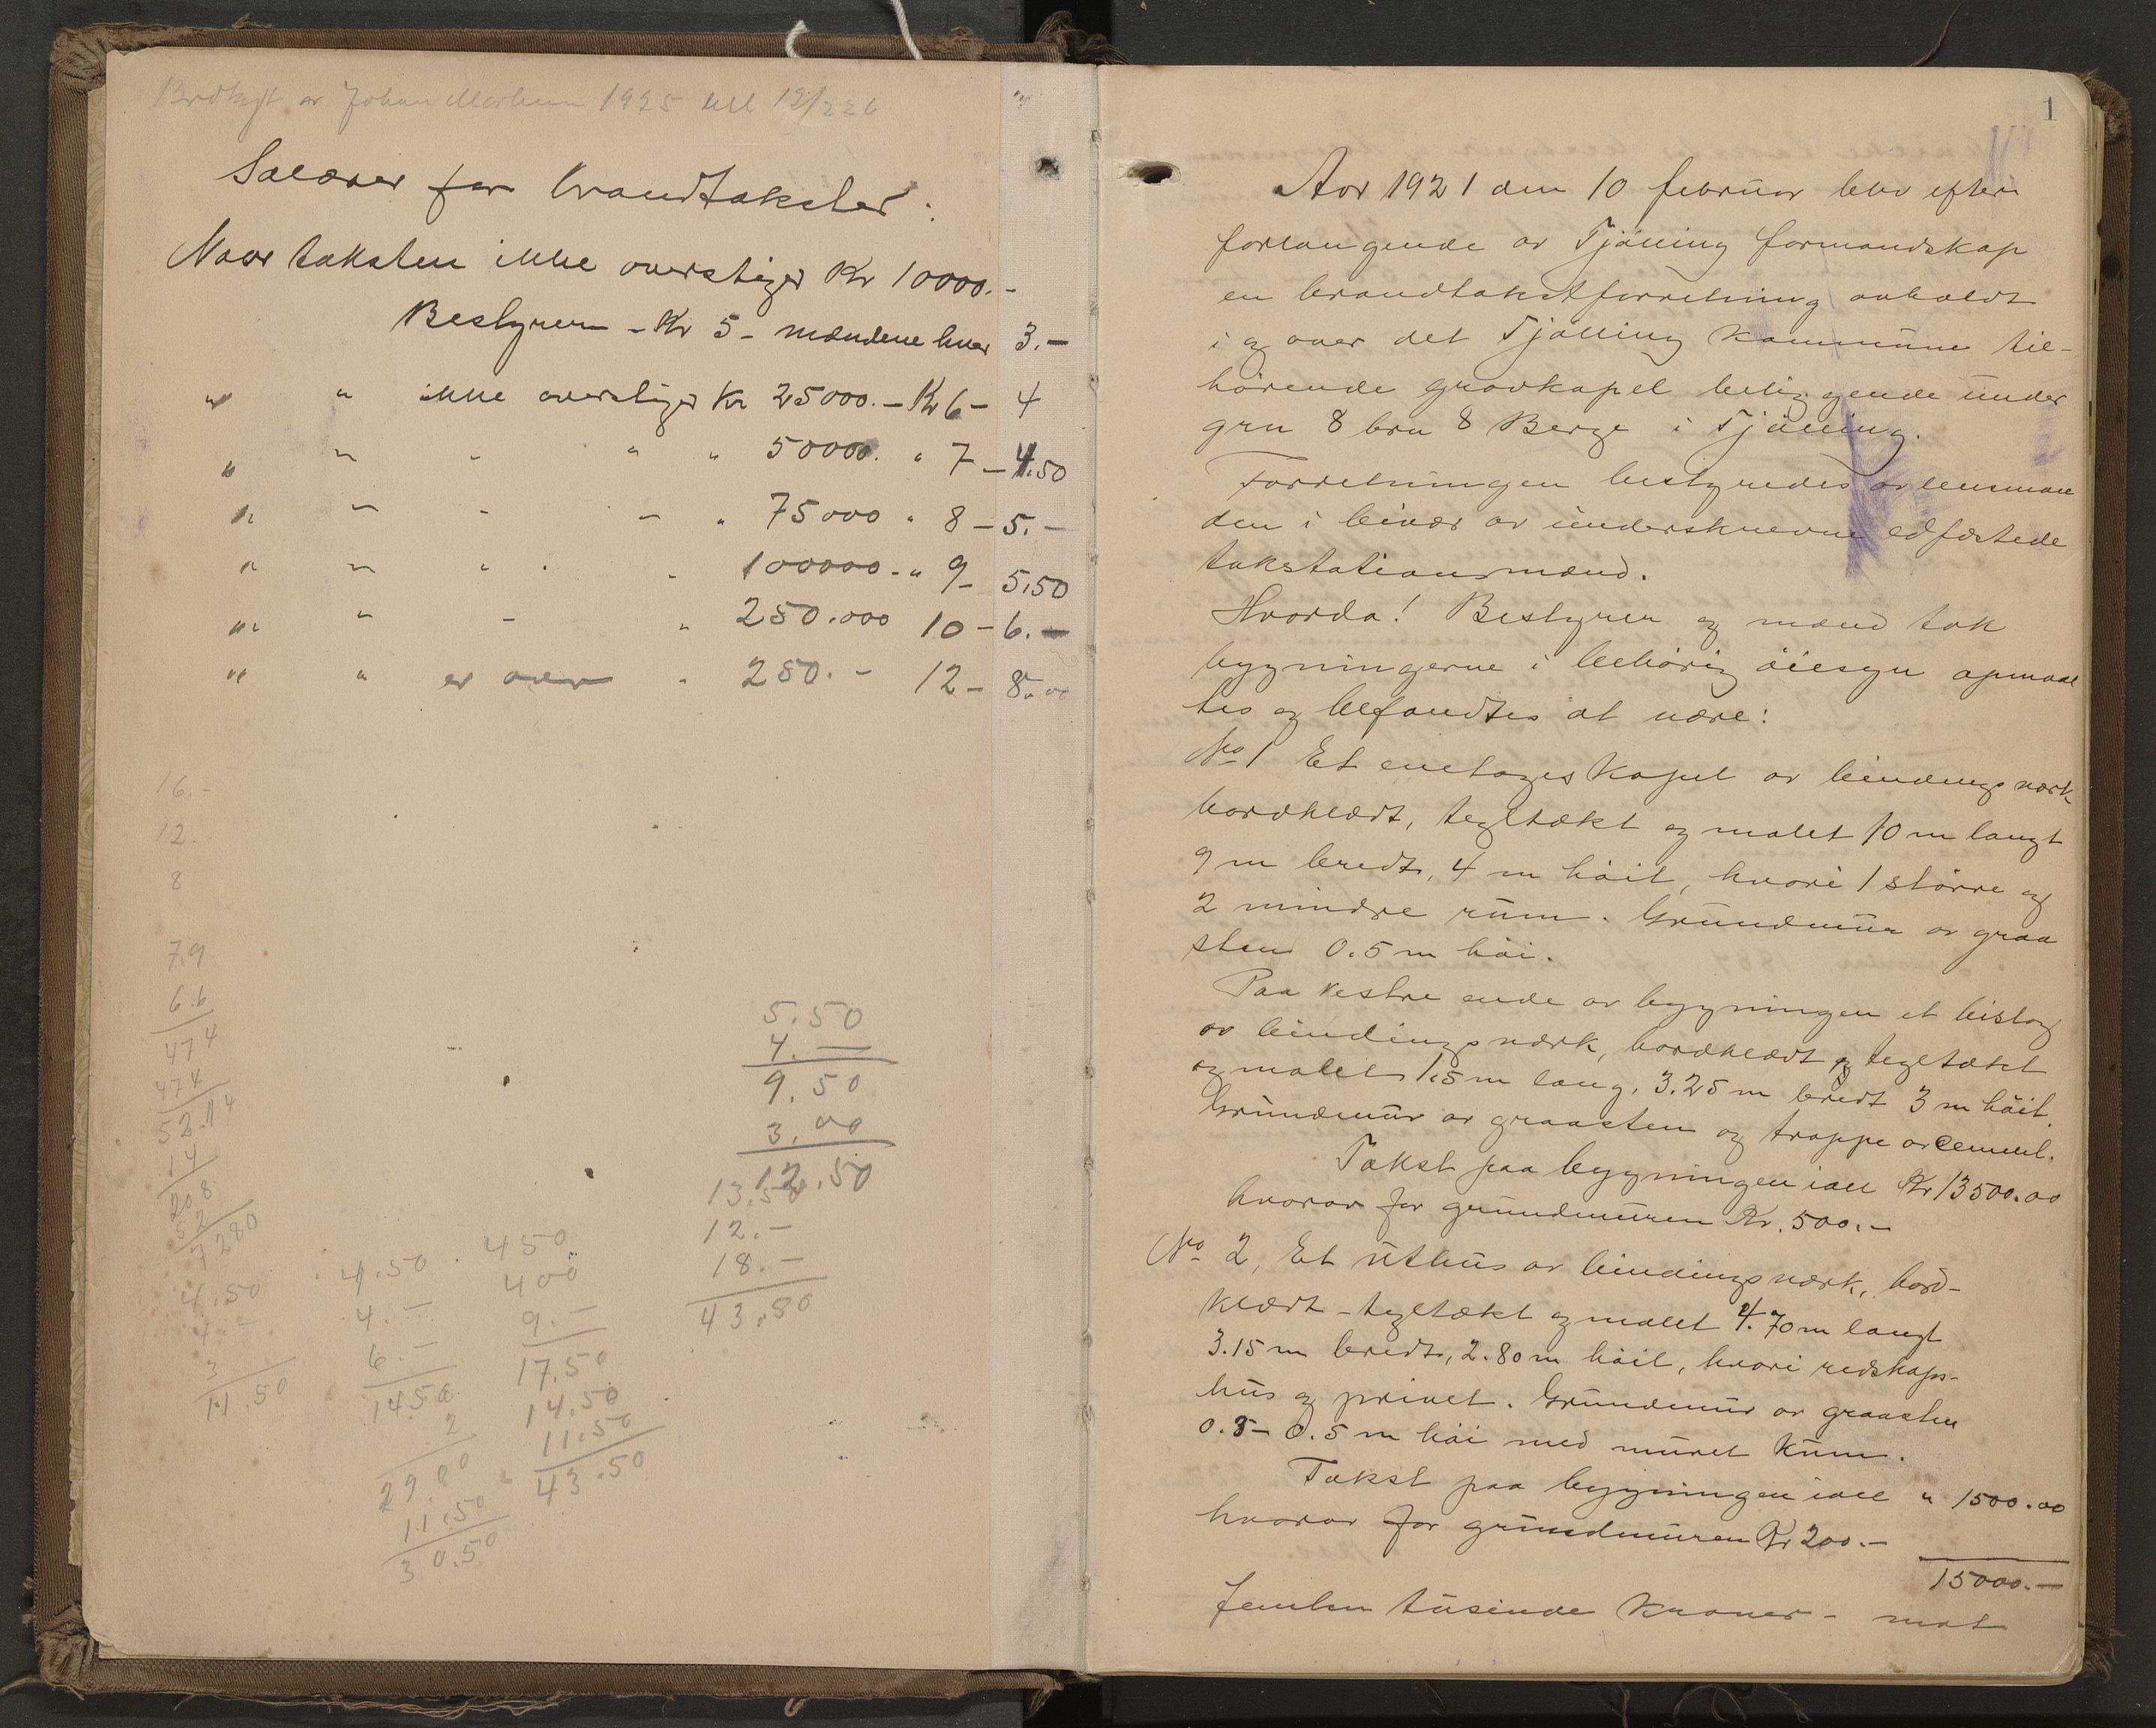 Johan 1925 till 12/2 26
Salærer for brandtakster:
Naar taksten ikke overstiger Kr 10000.-
Bestyreren - Kr 5 - mændene hver 3.-
" " ikke overstiger Kr 25000.- Kr 6 - 4
" " " " " 50000. " 7 - 4.50
" " " " " 75000 " 8 - 5.-
" " " " " 100000.- " 9 - 5.50
" " " " 250.000 10 - 6.-
" " er over " 250.- 12 - 8.00
16.-
12.
8
7.9
6.6
474
474
52.14
14
208
52
7280
4.50
4.-
3
11.50
4.50
4.-
6.-
14.50
2
29.00
11.50
30.50
450
400
9.-
17.50
14.50
11.50
43.50
5.50
4.-
9.50
3.00
12.50
13.50
12.-
18.-
43.50
1
Aar 1921 den 10 februar blev efter
forlangende av Tjölling formandskap
en brandtakstforretning avholdt
i og over det Tjölling kommune til-
hörende gravkapel beliggende under
grn 8 brn 8 Berge i Tjölling.
Forretningen bestyredes av lensman
den i beivær av underskrevne edfæstede
takstationsmænd.
Hvorda! Bestyrer og mænd tok
bygningerne i behörig öiesyn opmaal
tes og befandtes at være:
No 1 Et enetages kapel av bindingsværk
bordklædt, tegltækt og malet 10 m langt
9 m bredt, 4 m höit, hvori 1 större og
2 mindre rum. Grundmur av graa
sten 0.5 m höi.
Paa vestre ende av bygningen et bislag
av bindingsværk, bordklædt og tegltækt
og malet 1.5 m lang, 3.25 m bredt 3 m höit.
Grundmur av graasten og trappe av cement.
Takst paa bygningen ialt Kr 13500.00
hvorav for grundmuren Kr. 500.-
No 2, Et uthus av bindingsværk, bord-
klædt - tegltækt og malet 4.70 m langt
3.15 m bredt, 2.80 m höit, hvori redskaps-
hus og privet. Grundmur av graasten
0.3 - 0.5 m höi med muret kum.
Takst paa bygningen ialt " 1500.00
hvorav for grundmuren Kr 200.-
15000.-
Femten tusinde kroner - mot